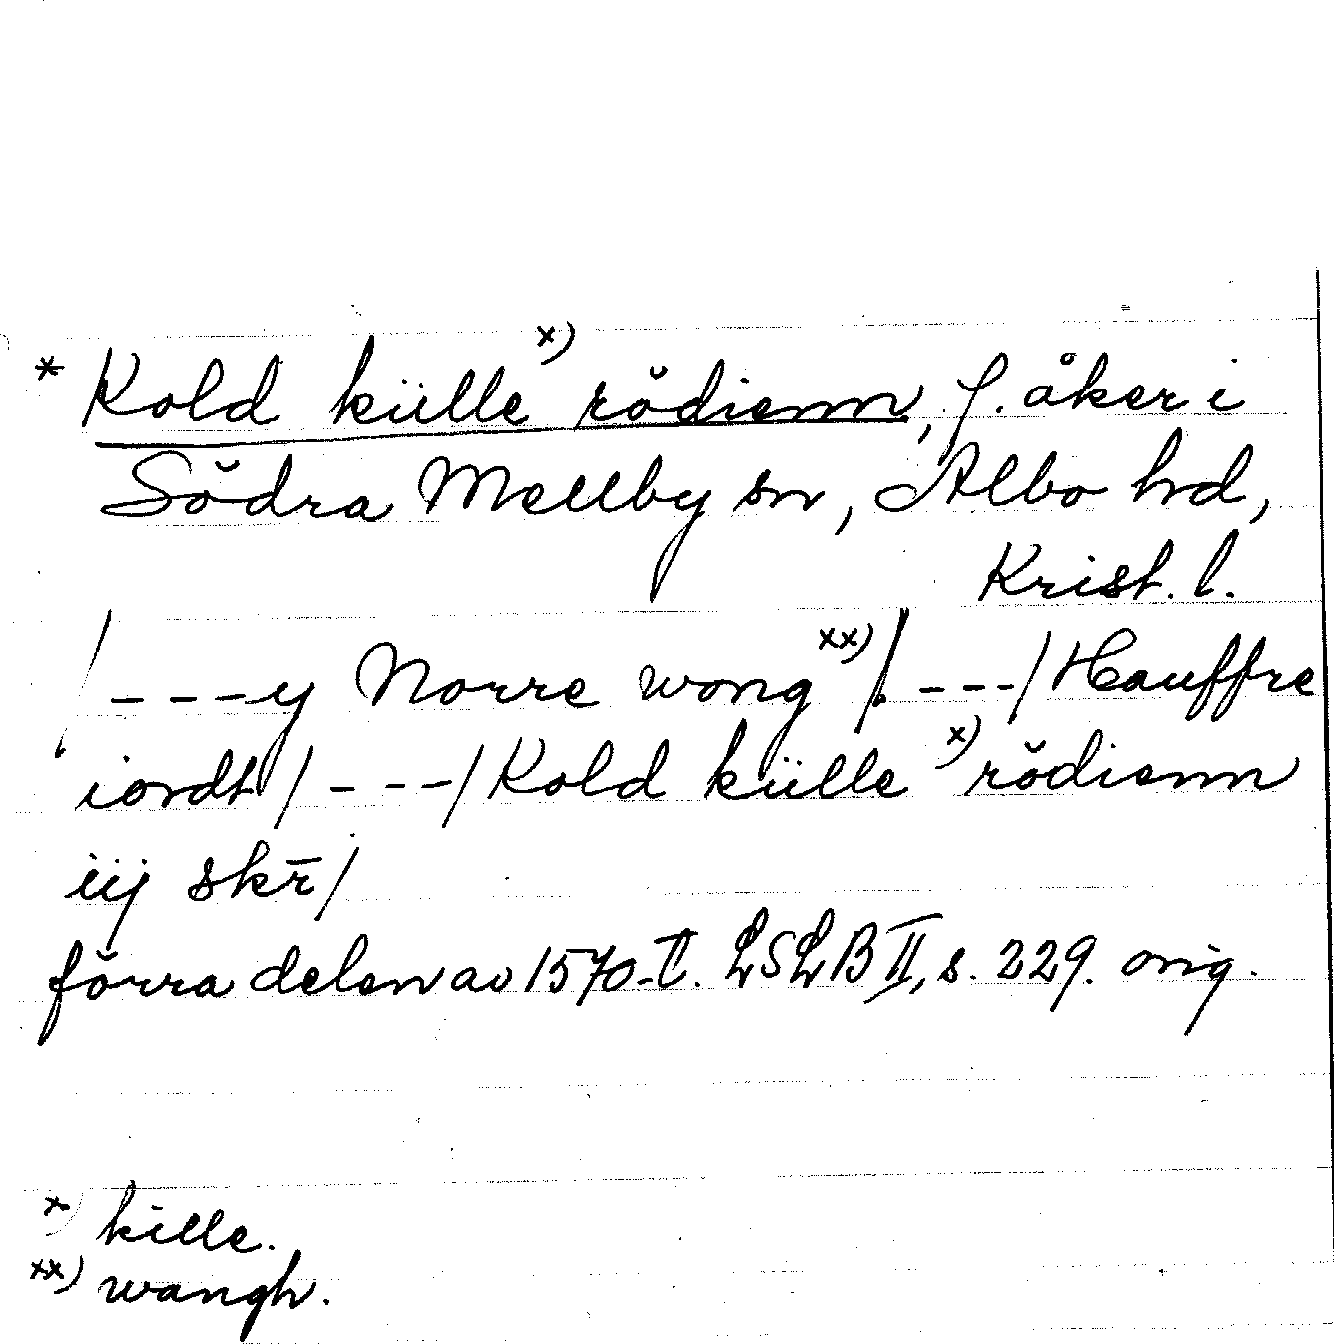 * Kold külle x) rödienn, f. åker i
Södra Mellby sn, Albo hd,
Krist. l.
/ - - - y Norre wong xx) /. - - - / Hauffre
iordt / - - - / Kold külle x) rödienn
iij skr̄ /
förra delen av 1570-t. LSLB II, s. 229. orig.
x) kille.
xx) wangh.